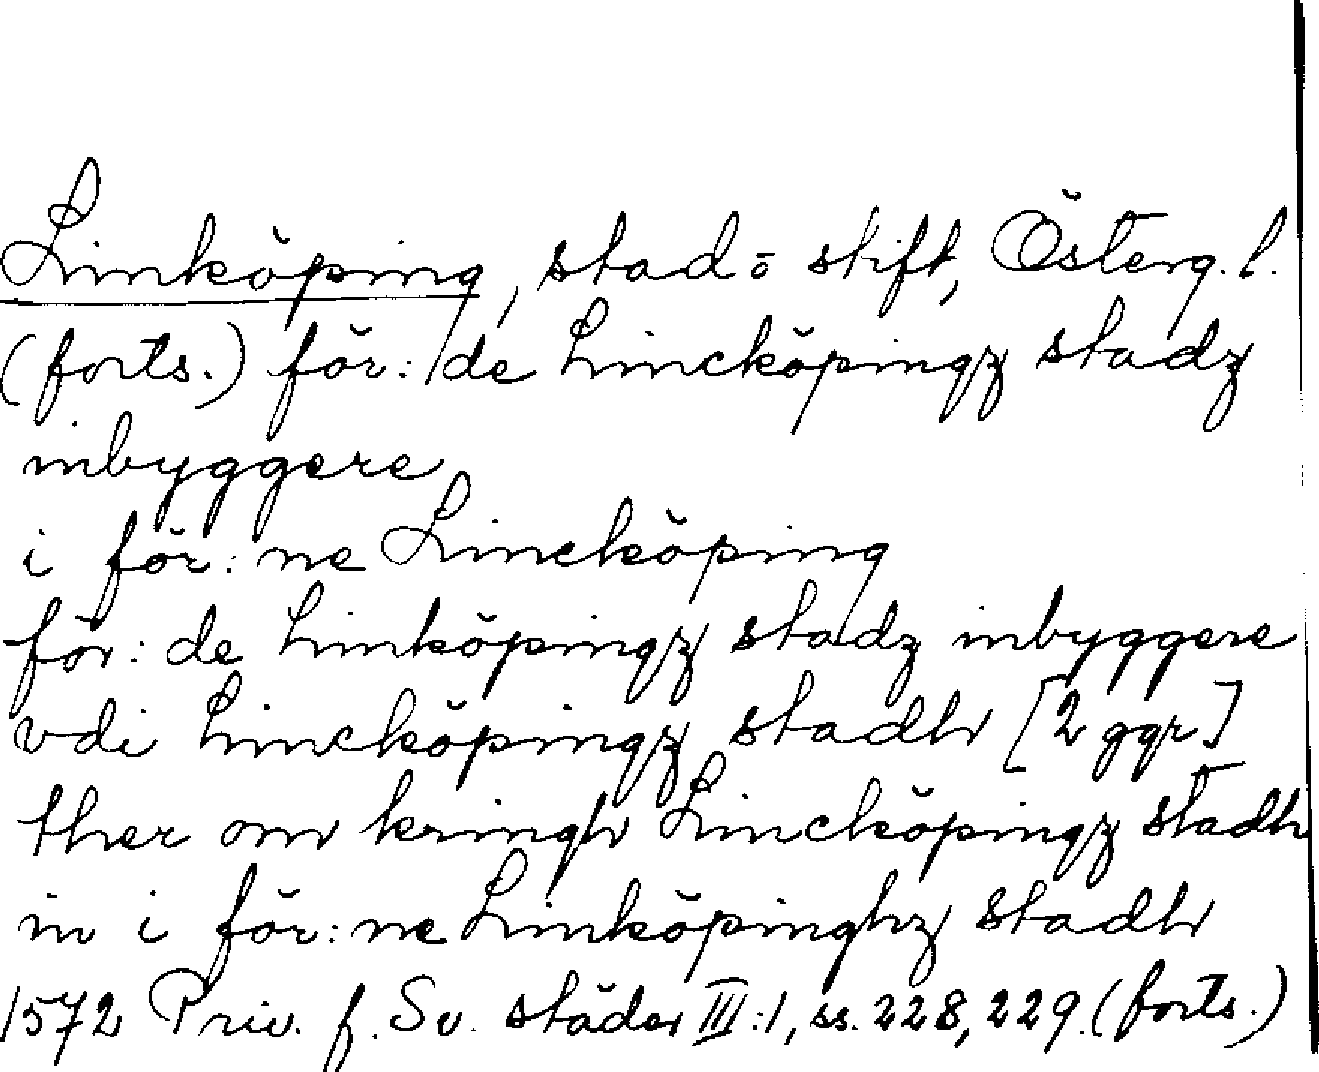 Linköping, stad o stift, Österg. l.
(forts.) för: de Linckőpingz stadz
inbyggere
i för: ne Linckőping
för: de Linköpingz stadz inbyggere
vdi Linckőpingz stadh [2 ggr]
ther om kringh Linckőpingz stadh
in i för: ne Linköpinghz stadh
1572 Priv. f. Sv. städer III:1, ss. 228, 229. (forts.)